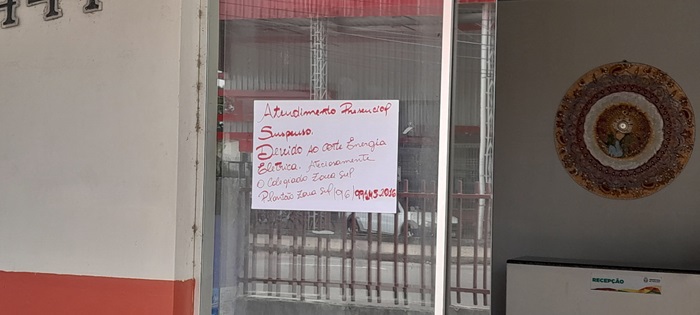 444
Atendimento Presencial
Suspenso.
Devido ao corte Energia
Elétrica. Atenciosamente
O Colegiado Zona Sul
Plantão Zona Sul (96) 99145-2056
RECEPÇÃO